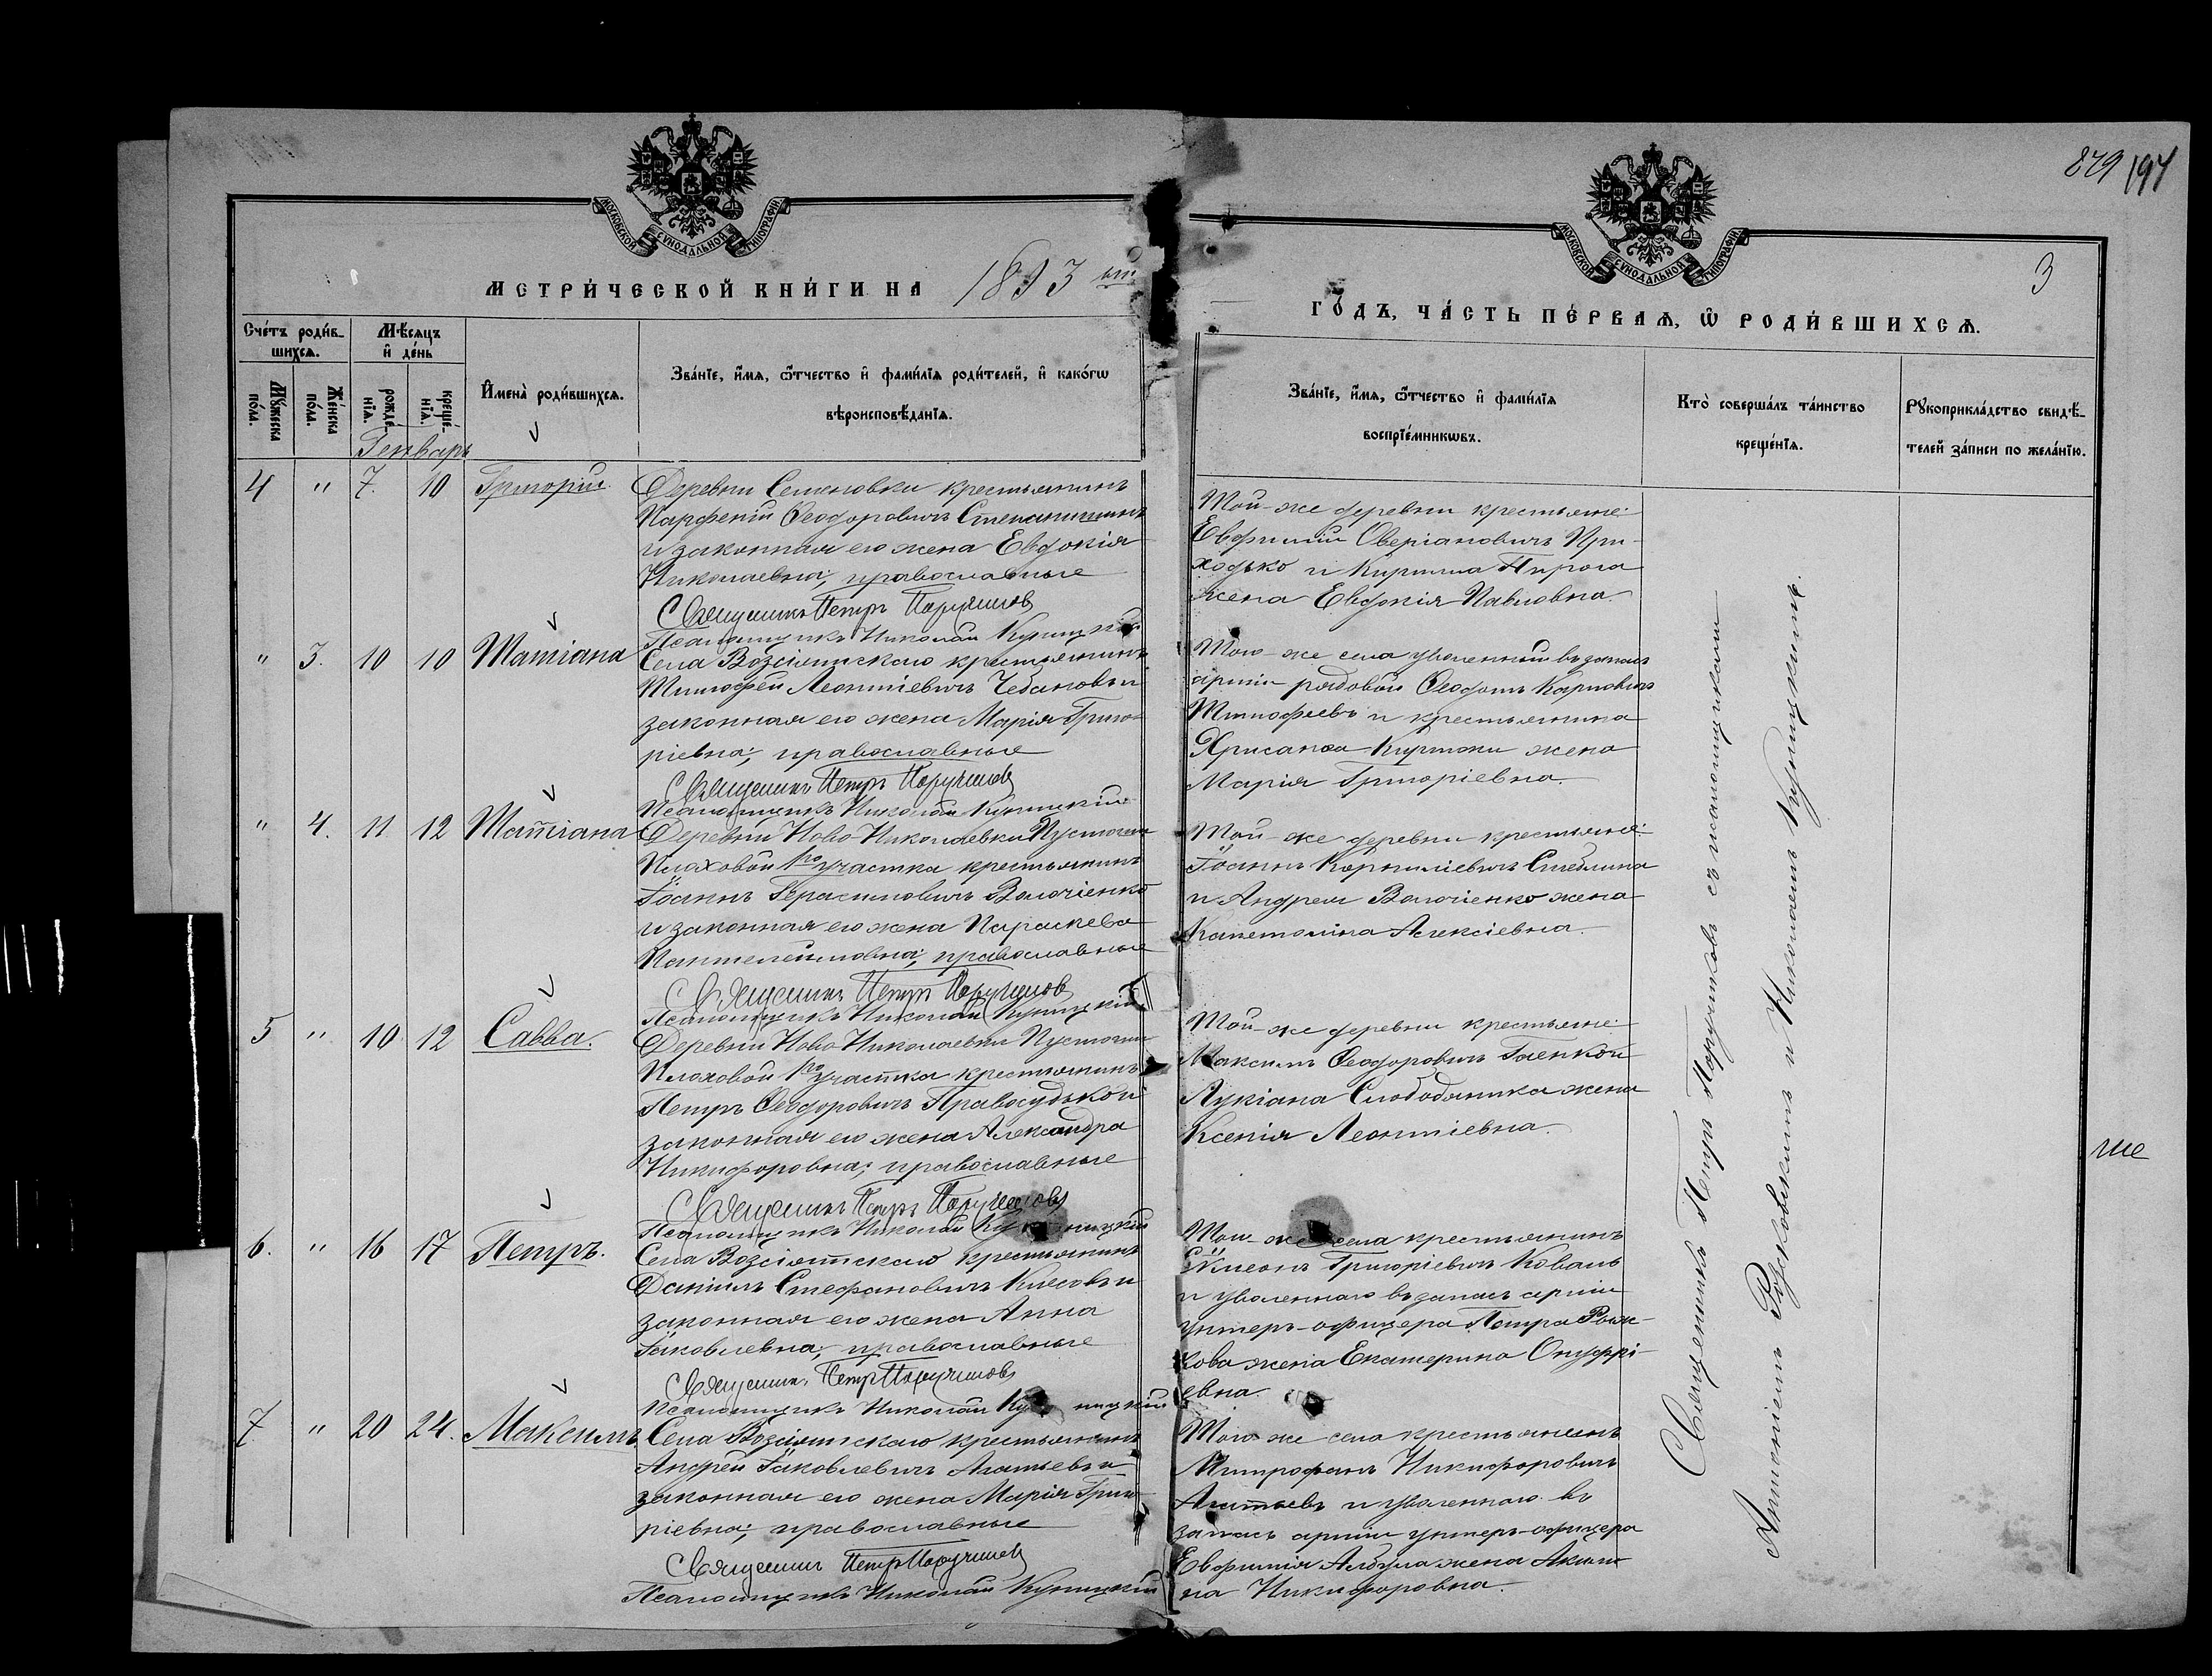 879 194
3
МОСКОВСКОЙ СУНОДАЛЬНОЙ ТИПОГРАФІИ
МОСКОВСКОЙ СУНОДАЛЬНОЙ ТИПОГРАФІИ
МЕТРИ́ЧЕСКОЙ КНИ́ГИ НА 1893
ГО́ДЪ, ЧА́СТЬ ПЕ́РВАЯ, Ѽ РОДИ́ВШИХСЯ.
Сче́тъ роди́в-
шихсѧ.
Мꙋ́жеска
по́ла.
Же́нска
по́ла.
Мѣ́сяцъ
и де́нь
рожде́
нїѧ.
креще́-
нїѧ.
Имена̀ роди́вшихсѧ.
Зва́нїе, и́мѧ, ѻ́тчество и фами́лїѧ роди́телей, и како́гѡ
вѣроисповѣ́данїѧ.
Зва́нїе, и́мѧ, ѻ́тчество и фами́лїѧ
воспрїе́мникѡвъ.
Кто̀ соверша́лъ та́инство
креще́нїѧ.
Рꙋкоприкла́дство свидѣ́-
телей за́писи по жела́нїю.
Генварь
4 " 7. 10 Григорій.
Деревни Семеновки крестьянинъ
Парфеній Ѳеодоровичъ
и законная его жена Евдокія
Николаевна; православные
Священникъ Петръ Поручиковъ
Псаломщикъ Николай Куницкій
Той-же деревни крестьяне:
Евфимій Оверіановичъ При-
ходько и Кирилла Пирога
жена Евдокія Павловна
" 3. 10 10 Татіана
Села Возсіятскаго крестьянинъ
Тимофей Леонтіевичъ Чебановъ и
законная его жена Марія Григо-
ріевна; православные
Священникъ Петръ Поручиковъ
Псаломщикъ Николай Куницкій
Того-же села уволенный въ запасъ
арміи рядовой Ѳеодотъ Карповичъ
Тимофеевъ и крестьянина
Хрисанѳа жена
Марія Григоріевна.
" 4. 11 12 Татіана
Деревни Ново-Николаевки Пустоши
Плаховой 1го участка крестьянинъ
Іоаннъ Герасимовичъ Волочіенко
и законная его жена Параскева
Пантелеимовна; православные
Священникъ Петръ Поручиковъ
Псаломщикъ Николай Куницкій
Той-же деревни крестьяне:
Іоаннъ Корниліевичъ Стеблина
и Андрея Волочіенко жена
Капетолина Алексіевна.
5 " 10 12 Савва.
Деревни Ново-Николаевки Пустоши
Плаховой 1го участка крестьянинъ
Петръ Ѳеодоровичъ Правосудько и
законная его жена Александра
Никифоровна; православные
Священникъ Петръ Поручиковъ
Псаломщикъ Николай Куницкій
Той-же деревни крестьяне:
Максимъ Ѳеодоровичъ Гаенко и
Лукіана Слободяника жена
Ксенія Леонтіевна.
6. " 16 17 Петръ.
Села Возсіятскаго крестьянинъ
Даніилъ Стефановичъ и
законная его жена Анна
Іаковлевна; православные
Священникъ Петръ Поручиковъ
Псаломщикъ Николай Куницкій
Того-же села крестьянинъ
Симеонъ Григоріевичъ Коваль
и уволеннаго въ запасъ арміи
унтеръ-офицера Петра Рыж-
кова жена Екатерина Онуфрі-
евна.
7 " 20 24. Максимъ
Села Возсіятскаго крестьянинъ
Андрей Іаковлевичъ Агатьевъ и
законная его жена Марія Григо-
ріевна; православные
Священникъ Петръ Поручиковъ
Псаломщикъ Николай Куницкій
Того-же села крестьянинъ
Митрофанъ Никифоровичъ
Агатьевъ и уволеннаго въ
запасъ арміи унтеръ-офицера
Евфимія жена Акили-
на Никифоровна.
Священникъ Петръ Поручиковъ съ псаломщиками
Антоніемъ и Николаемъ Куницкимъ.